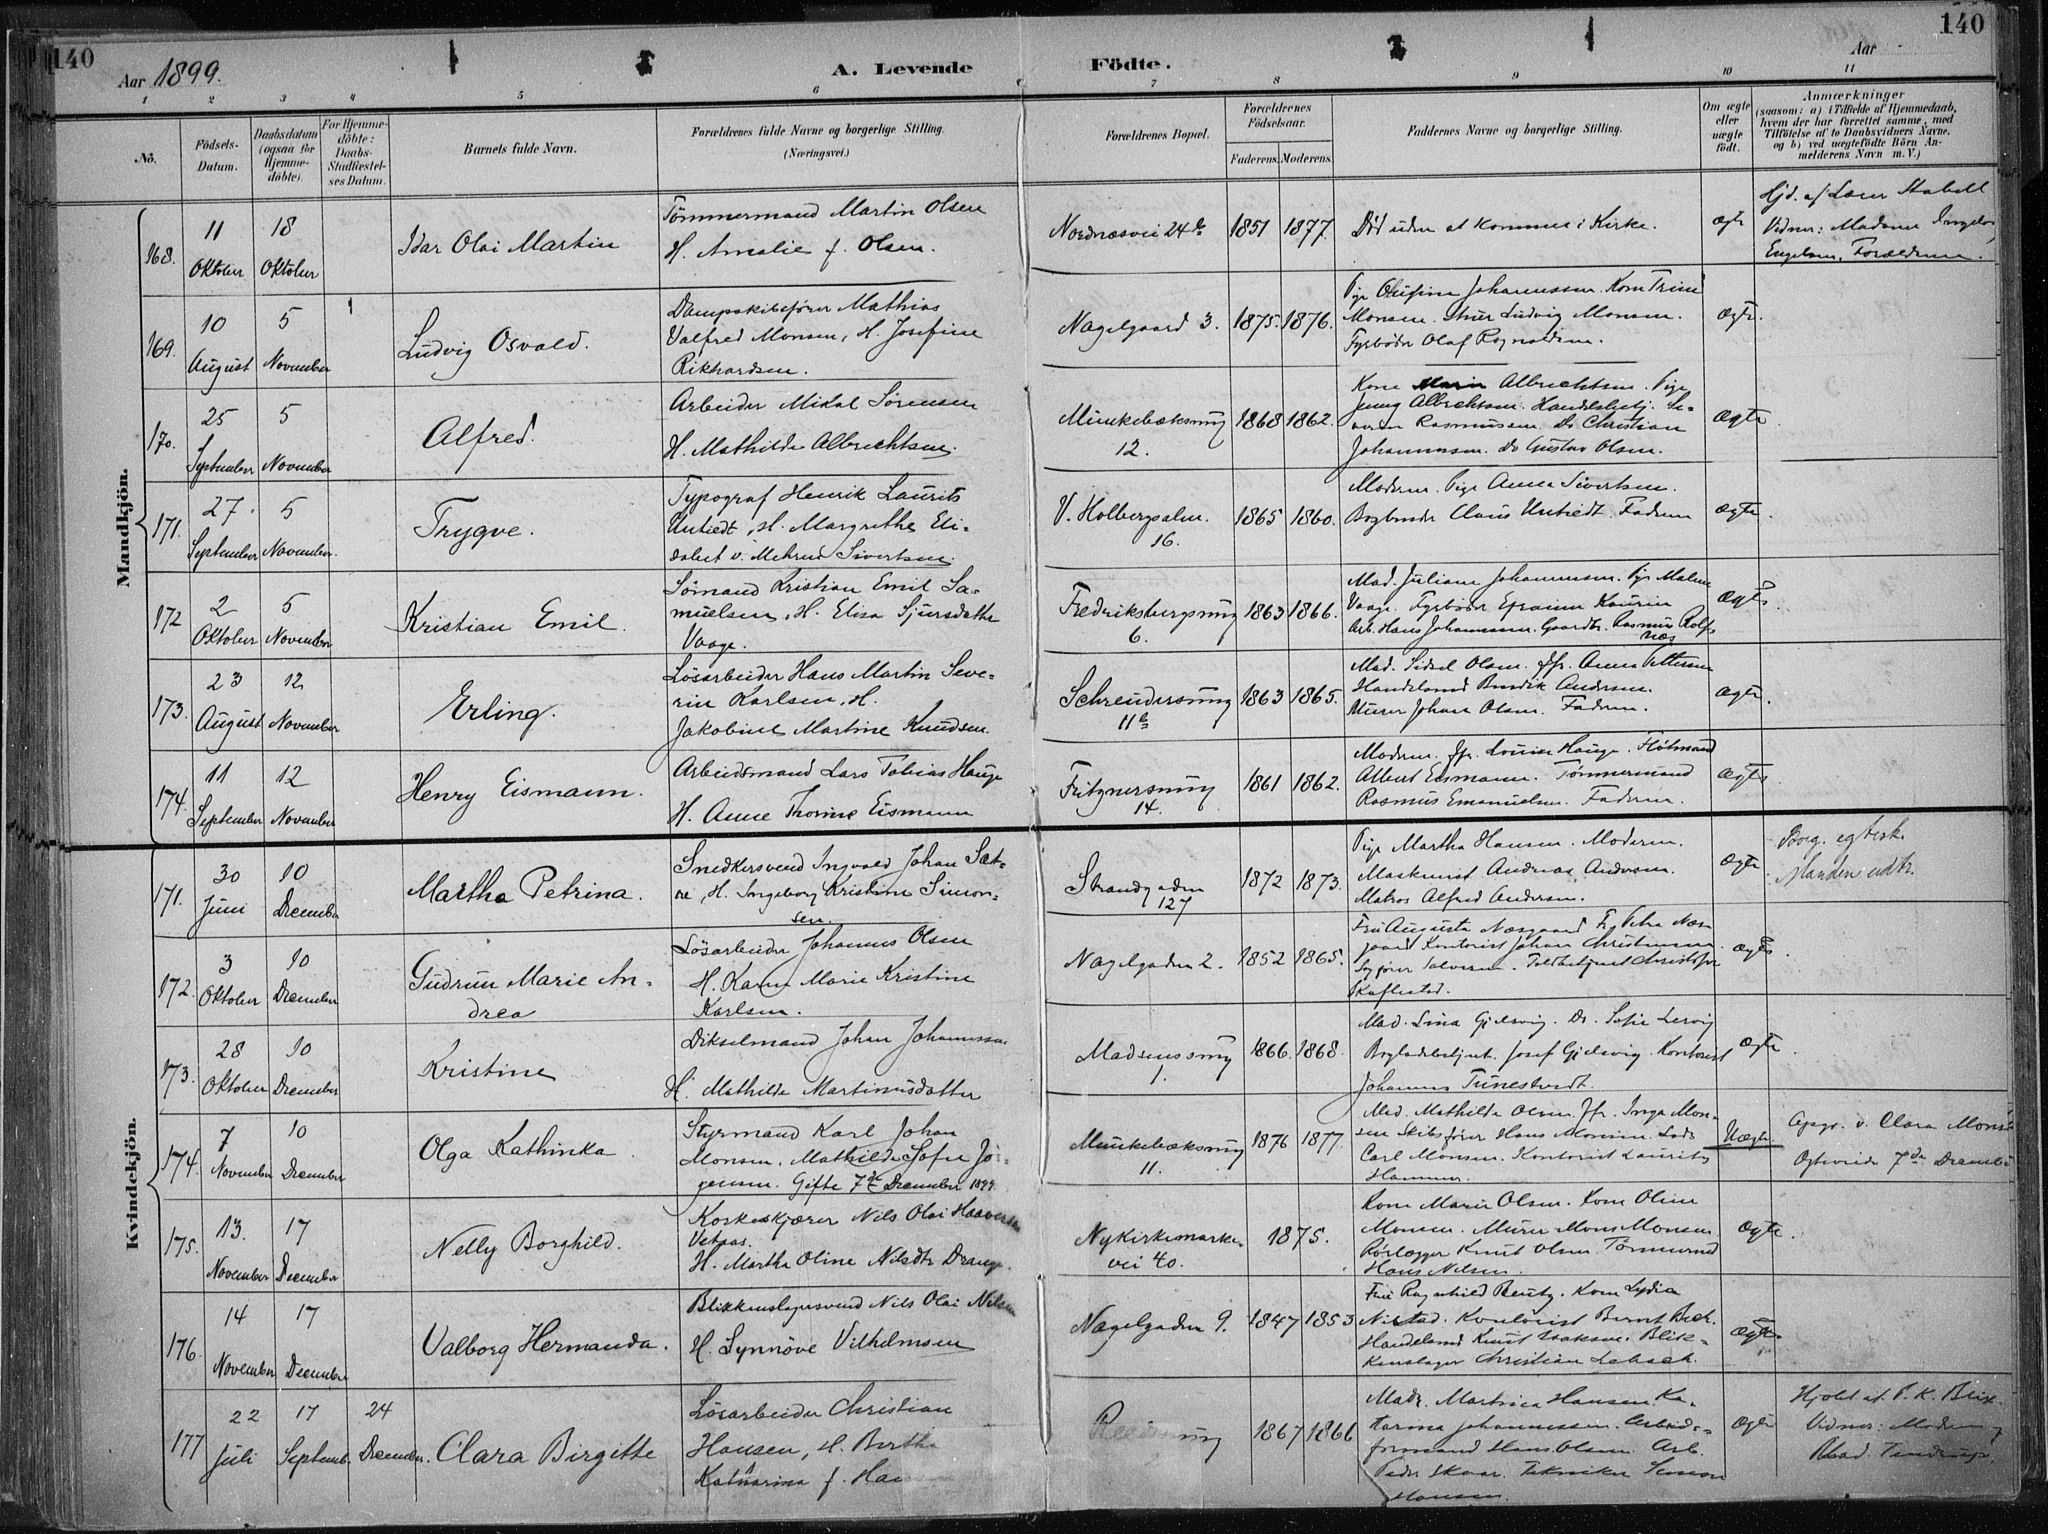 140
140
Aar 1899.
A. Levende Födte.
Aar
1 2 3 4 5 6 7 8 9 10 11
No.
Födsels-
Datum.
Daabsdatum
(ogsaa for
Hjemme-
döbte).
For Hjemme-
döbte:
Daabs-
Stadfæstel-
ses Datum.
Barnets fulde Navn.
Forældrenes fulde Navne og borgerlige Stilling.
(Næringsvei.)
Forældrenes Bopæl.
Forældrenes
Födselsaar.
Faderens. Moderens.
Faddernes Navne og borgerlige Stilling.
Om ægte
eller
uægte
födt.
Anmærkninger
(saasom: a) i Tilfælde af Hjemmedaab,
hvem der har forrettet samme, med
Tilföielse af to Daabsvidners Navne.
og b) ved uægtefödte Börn An-
melderens Navn m. V.)
Mandkjön.
168.
11
Oktober
18
Oktober
Idar Olai Martin
Tømmermand Martin Olsen
H. Amalie f. Olsen.
Nordnæsvei 24b
1851 1877.
Død uden at komme i Kirke.
ægte
Hjd. af Læge Stabell
Vidner: Madame
Engelsen, Forældrene.
169.
10
August
5
November
Ludvig Osvald.
Dampskibsfører Mathias
Valfred Monsen, H. Josefine
Rikhardsen.
Nagelgaard 3.
1875. 1876.
Pige Olufine Johannessen. Kone Trine
Monsen. Ludvig Monsen.
Fyrbøder Olaf Regnaldsen.
ægte.
170.
25
September
5
November
Alfred.
Arbeider Mikal Sørensen
H. Mathilde Albrechtsen.
Munkebæksmug
12.
1868 1862.
Kone Marie Albrechtsen. Pige
Jenny Albrechtsen. Handelsbetj. Se-
veren Rasmussen. Do Christian
Johannesen. Do Gustav Olsen.
ægte
171.
27.
September
5
November.
Trygve.
Typograf Henrik Laurits
Untiedt, H. Margrethe Eli-
sabet v. Mehren Sivertsen.
V. Holbergsalm.
16.
1865 1860.
Moderen. Pige Anna Sivertsen.
Bogbinder Claus Untiedt. Faderen
ægte.
172
2
Oktober
5
November
Kristian Emil.
Sømand Kristian Emil Sa-
muelsen, H. Elisa Sjursdatter
Vaage.
Fredriksbergsmug
6.
1863 1866.
Mad. Juliane Johannesen. Pige Malene
Vaage. Fyrbøder Efraim Kaurin
Arb. Hans Johannesen. Gaardbr. Rasmus Rolfs
næs
ægte
173.
23
August
12
November
Erling.
Løsarbeider Hans Martin Seve-
rin Karlsen, H.
Jakobine Martine Knudsen.
Schreudersmug
11b
1863 1865.
Mad. Sidsel Olsen. Jfr. Anna Pettersen
Handelsmd Bendik Andersen.
Murer Johan Olsen. Faderen.
ægte.
174.
11
September
12
November
Henry Eismann.
Arbeidsmand Lars Tobias Hauge
H. Anne Thorine Eismann
Fritznersmug
14.
1861 1862.
Moderen. Jfr. Louise Hauge. Fløtmand
Albert Eismann. Tømmermand
Rasmus Emanuelsen. Faderen.
ægte
Kvindekjön.
171.
30
Juni
10
December
Martha Petrina.
Snedkersvend Ingvald Johan Sæt-
re, H. Ingeborg Kristine Simon-
sen.
Strandgaden
127
1872 1873.
Pige Martha Hansen. Moderen.
Maskinist Andreas Andersen.
Matros Alfred Andersen.
ægte.
Borg. egtesk.
Manden udtr.
172.
3
Oktober
10
December
Gudrun Marie An-
drea
Løsarbeider Johannes Olsen
H. Karen Marie Kristine
Karlsen.
Nagelgaden 2.
1852 1865.
Fru Augusta Næsgaard Fr. Petra Næs-
gaard Kontorist Johan Christensen
Sagfører Salvesen. Toldbetjent Christofer
Skaflestad.
ægte
173.
28
Oktober
10
December
Kristine
Dikselmand Johan Johannessen
H. Mathilde Martinusdatter
Madsenssmug
1.
1866. 1868.
Mad. Lina Gjelsvig. Do. Sofie Lervig
Bogladebetjent. Josef Gjelsvig. Kontorist
Johannes Tunestvedt.
ægte
174.
7
November
10
December
Olga Kathinka
Styrmand Karl Johan
Monsen, Mathilde Sofie Jør-
gensen. Gifte 7de December 1899
Munkebæksmug
11.
1876 1877.
Mad. Mathilde Olsen. Jfr. Inga Mon-
sen Skibsfører Hans Monsen. Lods
Carl Monsen. Kontorist Laurits
Hammer.
Uægte.
Opgr. v. Clara Mons
Egteviede 7de Decembe
175.
13.
November
17
December
Nelly Borghild.
Korkeskjærer Nils Olai Haaversen
Vetaas.
H. Martha Oline Nilsdtr Drange.
Nykirkemarke-
vei 40.
1875.
Kone Marie Olsen. Kone Oline
Monsen. Murer Mons Monsen
Rørlægger Knut Olsen. Tømmermd
Hans Nilsen.
ægte.
176.
14
November
17
December
Valborg Hermanda.
Blikkenslagersvend Nils Olai Nilsen
H. Synnøve Vilhelmsen
Nagelgaden 9.
1847 1853
Fru Ragnhild Beutz. Kone Lydia
Nistad. Kontorist Bernt Bech.
Handelsmd Knut Isaksen. Blik-
kenslager Christian Lebsch.
ægte
177
22
Juli
17
Septemb.
24
December.
Clara Birgitte
Løsarbeider Christian
Hansen, H. Bertha
Katharina f. Han
1867 1866
Mad. Martina Hansen Ka-
tarina Johannessen. Arbeids-
formand Hans Olsen. Arb.
Peder Skaar. Tekniker
Monsen.
ægte
Hjdbt af. P. K. Blix.
Vidner: Moderen
Mad.